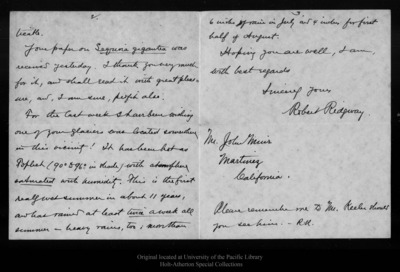 2.
health.
Your paper on Sequoia gigantea was
received yesterday. I thank you very much
for it, and shall read it with great pleas-
ure, and, I am sure, profit also.
For the last week I have been wishing
one of your glaciers was located somewhere
in this vicinity! It has been hot as
(90° & 96° in shade) with atmosphere
saturated with humidity. This is the first
really wet summer in about 11 years,
and has rained at least twice a week all
summer – heavy rains, too; more than
3.
6 inches in July and 4 inches for first
half of August.
Hoping you are well, I am,
with best regards
Sincerely yours
Robert Ridgway
Mr. John Muir
Martinez
California.
Please remember me to Mr. Keeler should
you see him. – R.R.
Original located at University of the Pacific Library
Holt-Atherton Special Collections